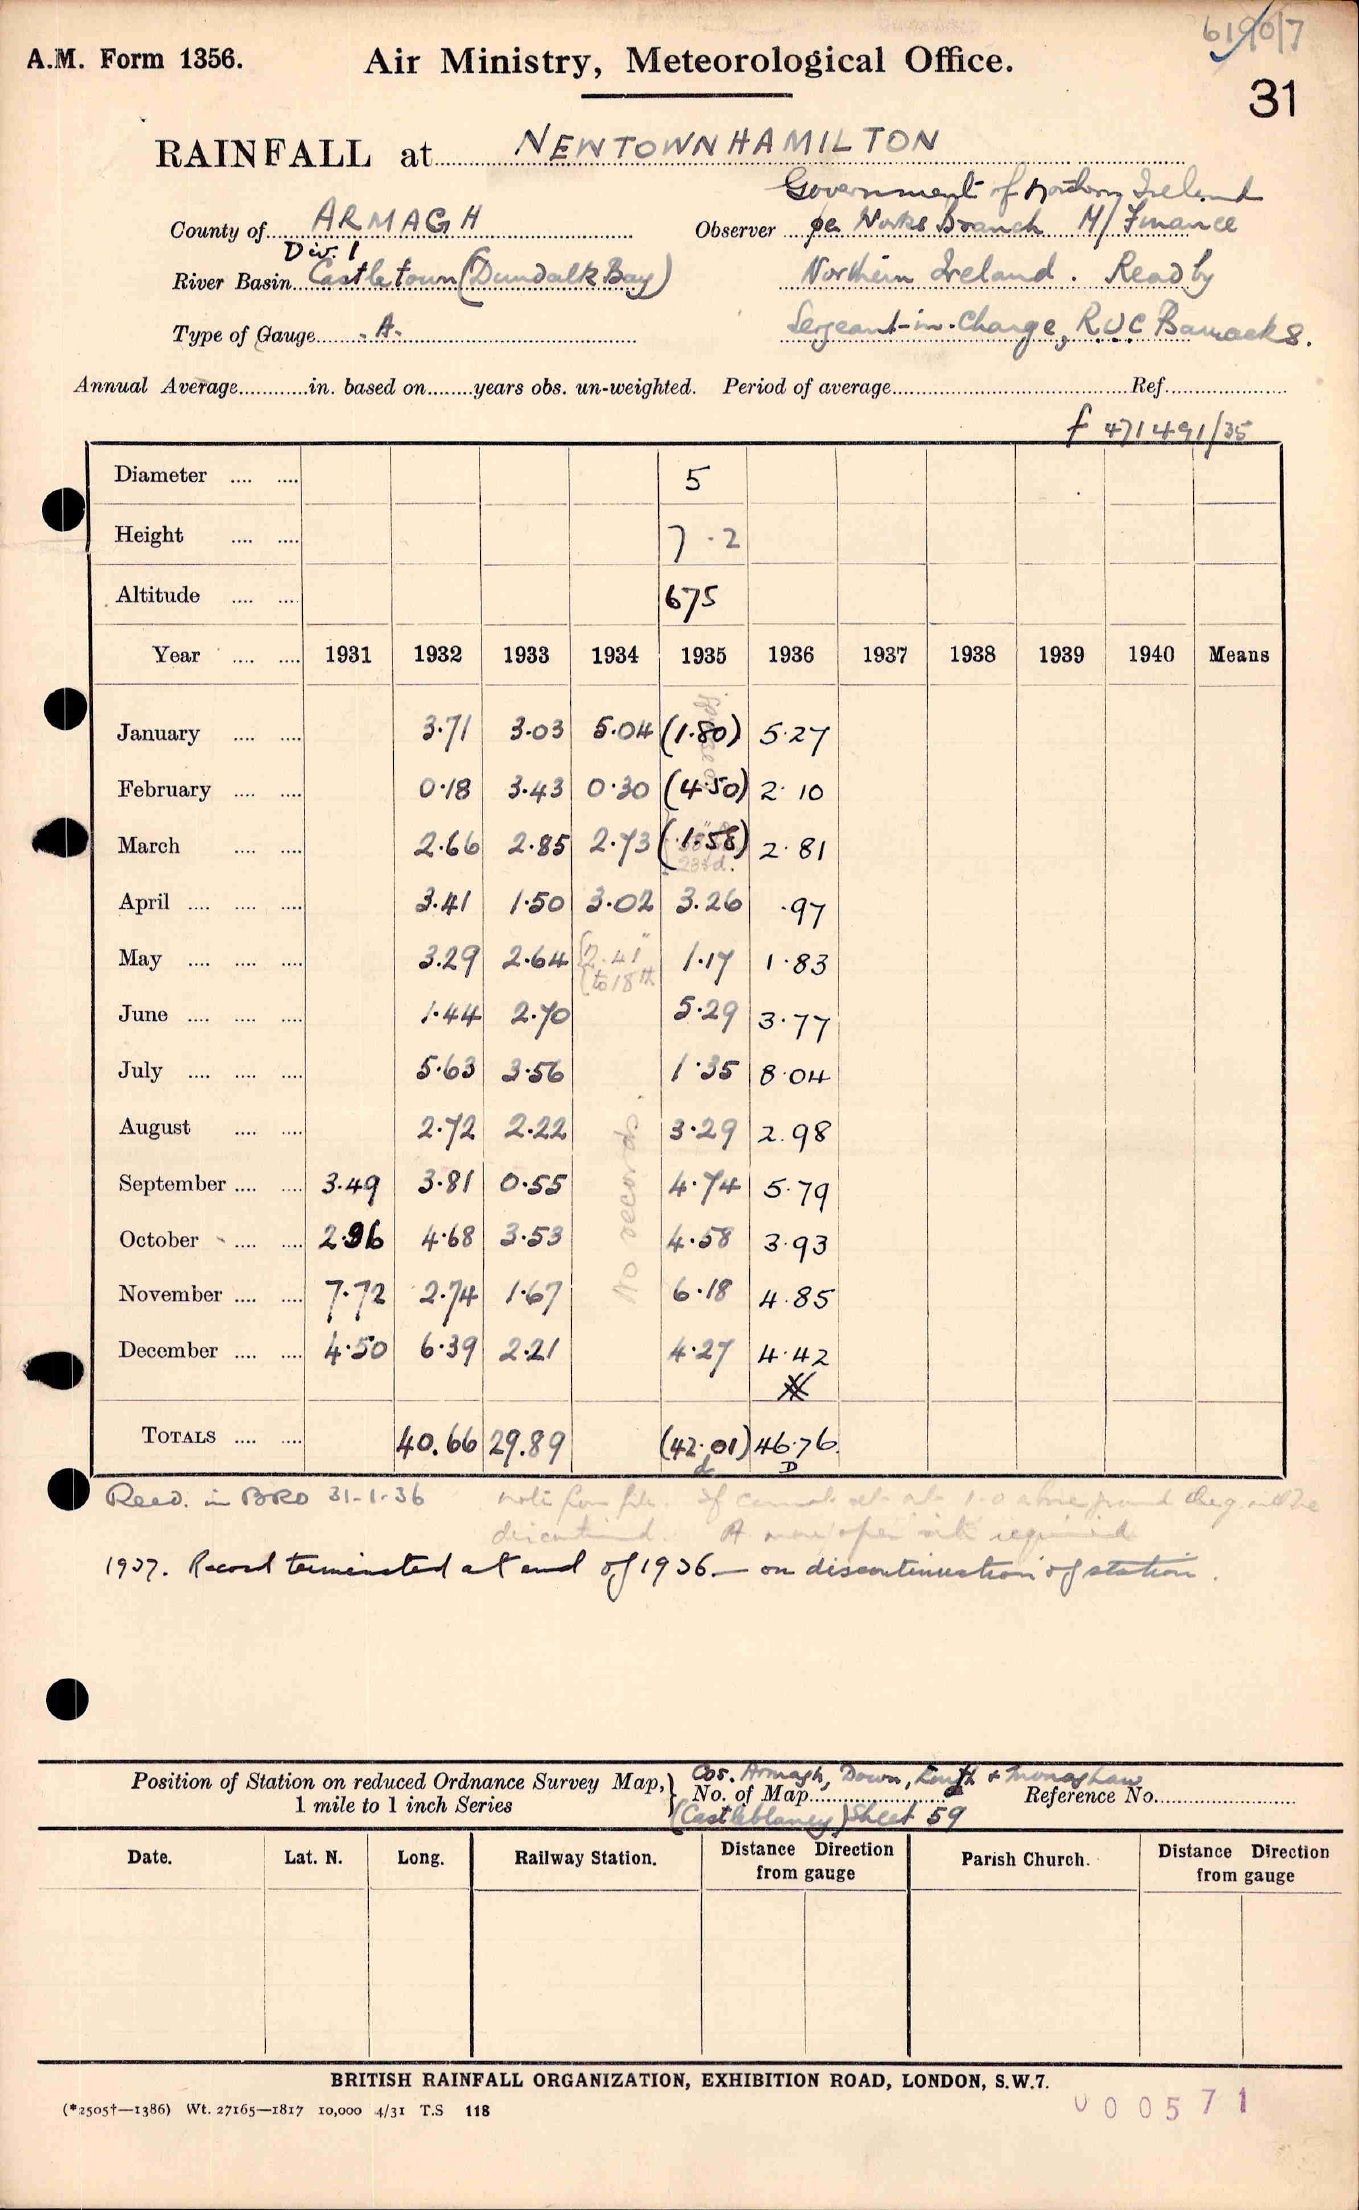 6190/7
A.M. Form 1356.
Air Ministry, Meteorological Office.
31
RAINFALL at NEWTOWNHAMILTON
County of ARMAGH
Div. 1
River Basin Castletown (Dundalk Bay)
Type of Gauge A.
Government of Northern Ireland
Observer per Works Branch M/Finance
Northern Ireland. Read by
Sergeant-in-Charge, RUC Barracks.
Annual Average............in. based on........years obs. un-weighted. Period of average..............................Ref..................
f 471491/35
Diameter .... .... 5
Height .... .... 7 .2
Altitude .... .... 675
Year .... .... 1931 1932 1933 1934 1935 1936 1937 1938 1939 1940 Means
January .... .... 3.71 3.03 5.04 (1.80) 5.27
February .... .... 0.18 3.43 0.30 (4.50) 2.10
March .... .... 2.66 2.85 2.73 (1.58) 2.81
23rd.
April .... .... .... 3.41 1.50 3.02 3.26 .97
May .... .... .... 3.29 2.64 {2.41" 1.17 1.83
(to 18th
June .... .... .... 1.44 2.70 5.29 3.77
July .... .... .... 5.63 3.56 1.35 8.04
August .... .... 2.72 2.22 3.29 2.98
No records.
September .... .... 3.49 3.81 0.55 4.74 5.79
October .... .... 2.96 4.68 3.53 4.58 3.93
November .... .... 7.72 2.74 1.67 6.18 4.85
December .... .... 4.50 6.39 2.21 4.27 4.42
TOTALS .... .... 40.66 29.89 (42.01) 46.76
d D
Recd. in BRO 31-1-36 note from file. If cannot set at 1-0 above ground the g. will be
discontinued. A more open site required
1937. Record terminated at end of 1936 — on discontinuation of station.
Position of Station on reduced Ordnance Survey Map,
1 mile to 1 inch Series
Cos. Armagh, Down, Louth & Monaghan
No. of Map.................... Reference No.....................
(Castleblaney) Sheet 59
Date. Lat. N. Long. Railway Station. Distance Direction from gauge Parish Church. Distance Direction from gauge
BRITISH RAINFALL ORGANIZATION, EXHIBITION ROAD, LONDON, S.W.7.
(*2505†—1386) Wt. 27165—1817 10,000 4/31 T.S 118
000571